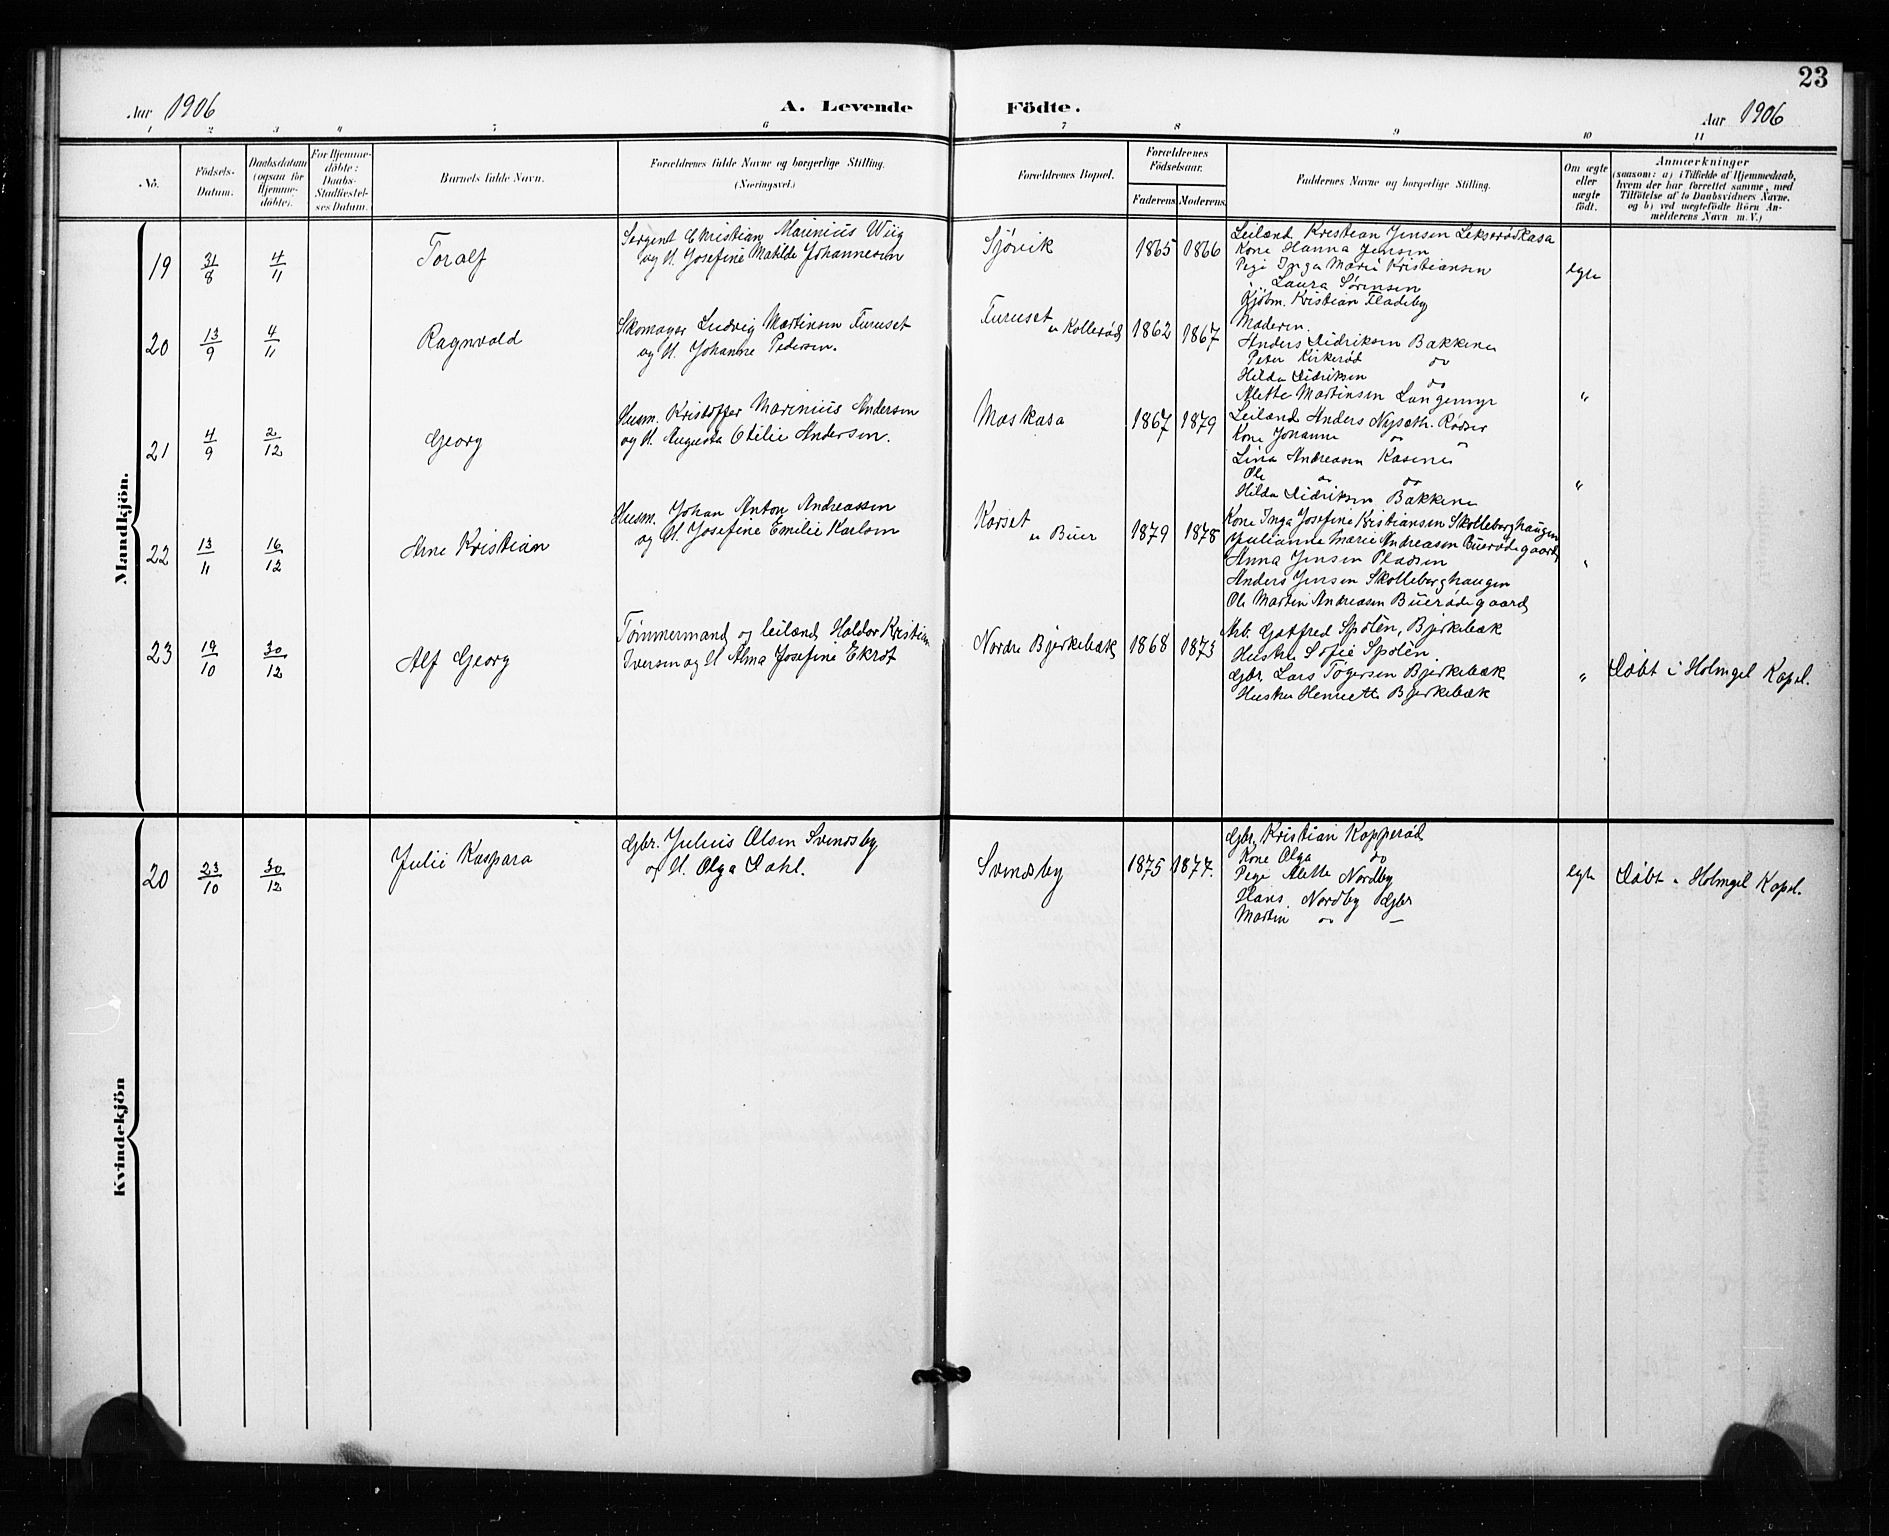 23
Aar 1906
A. Levende Födte.
Aar 1906
1 2 3 4 5 6 7 8 9 10 11
No.
Födsels-Datum.
Daabsdatum (ogsaa for Hjemmedöbte).
For Hjemmedöbte: Daabs-Stadfæstelses Datum.
Barnets fulde Navn.
Forældrenes fulde Navne og borgerlige Stilling.
(Næringsvei.)
Forældrenes Bopæl.
Forældrenes Födselsaar.
Faderens. Moderens.
Faddernes Navne og borgerlige Stilling.
Om ægte eller uægte födt.
Anmærkninger
(saasom: a) i Tilfælde af Hjemmedaab,
hvem der har forrettet samme, med
Tilföielse af to Daabsvidners Navne,
og b) ved uægtefödte Börn An-
melderens Navn m. V.)
Mandkjön.
19 31/8 4/11 Toralf
Sergent Christian Marinius Wiig
og H. Josefine Matilde Johannesen
Sjövik 1865 1866
Leilænd Kristian Jensen Lekserödkasa
Kone Hanna Jensen
Pige Inga Marie Kristiansen
Laura Sörensen
Kjöbm. Kristian Fladeby
egte
20 13/9 4/11 Ragnvald
Skomager Ludvig Martinsen Furuset
og H. Johanne Pedersen.
Furuset u Kolleröd 1862 1867
Moderen.
Anders Didriksen Bakkene
Peter Kirkeröd do
Hilda Didriksen do
Alette Martinsen Langemyr
"
21 4/9 2/12 Georg
Husm. Kristoffer Marinius Andersen
og H. Augusta Otilie Andersen.
Maskasa 1867 1879
Leilænd Anders Nyseth. Rödser
Kone Johanne " "
Lina Andreasen Kasene
Ole do do
Hilda Didriksen Bakkene
"
22 13/11 16/12 Arne Kristian
Husm. Johan Anton Andreassen
og H. Josefine Emilie Karlsen
Korset u Buer 1879 1878
Kone Inga Josefine Kristiansen Skolleborghaugen
Julianne Marie Andreasen Buerödegaard
Anna Jensen Pladsen
Anders Jensen Skolleborghaugen
Ole Martin Andreasen Buerödegaard
"
23 19/10 30/12 Alf Georg
Tömmermand og leilænd Haldor Kristian
Iversen og H Alma Josefine Ekrot
Nordre Bjerkebæk 1868 1873
Arb. Gotfred Spolèn, Bjerkebæk
Hustru Sofie Spolèn
Gbr. Lars Tögersen Bjerkebæk
Hustru Henriette Bjerkebæk
"
Döbt i Holmgil Kapel.
Kvindekjön
20 23/10 30/12 Julie Kaspara
Gbr. Julius Olsen Svendsby
og H. Olga Dahl.
Svendsby 1875 1877.
Gbr. Kristian Kopperöd
Kone Olga do
Pige Alette Nordby
Hans Nordby Gbr
Martin do —
egte
Döbt i Holmgil Kapel.